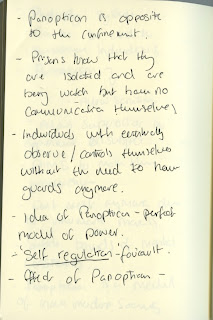 - Panoptican is opposite
to the confinement.
- Prisoners know that they
are isolated and are
being watch but have no
Communication themselves
- Individuals with eventually
observe / controls themselves
without the need to have
guards anymore.
- Idea of Panoptican - perfect
model of power.
- 'Self regulation' - foucault.
- Effect of Panoptican -